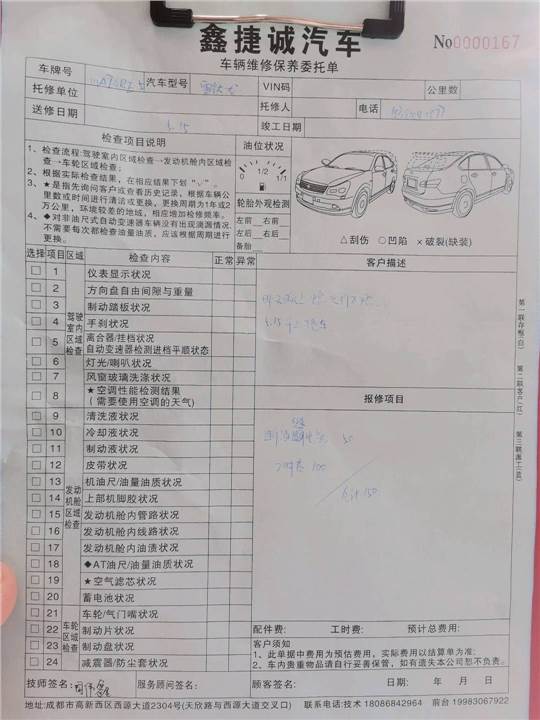 鑫捷诚汽车
No0000167
车辆维修保养委托单
车牌号 汽车型号 VIN码 公里数
托修单位 托修人 电话
送修日期 竣工日期
检查项目说明
1、检查流程:驾驶室内区域检查→发动机舱内区域检
查→车轮区域检查;
2、根据实际检查结果,在相应结果下划"√"。
3、★是指先询问客户或查看历史记录,根据车辆公
里数或时间进行清洁或更换,更换周期为1年或2
万公里,环境较差的地域,相应增加检修频率。
4、◆对非油尺式自动变速器车辆没有出现滴漏情况
不需要每次都检查油量油质,应该根据周期进行
更换。
油位状况
0 1/2 1/1
轮胎外观检测
左前□ 右前□
左后□ 右后□
备胎□
△刮伤 ○凹陷 ×破裂(缺装)
选择 项目 区域 检查内容 正常 异常
驾驶室内区域检查
□ 1 仪表显示状况
□ 2 方向盘自由间隙与重量
□ 3 制动踏板状况
□ 4 手刹状况
□ 5 离合器/挂档状况
自动变速器检测进档平顺状态
□ 6 灯光/喇叭状况
□ 7 风窗玻璃洗涤状况
□ 8 ★空调性能检测结果
(需要使用空调的天气)
发动机舱区域检查
□ 9 清洗液状况
□ 10 冷却液状况
□ 11 制动液状况
□ 12 皮带状况
□ 13 机油尺/油量油质状况
□ 14 上部机脚胶状况
□ 15 发动机舱内管路状况
□ 16 发动机舱内线路状况
□ 17 发动机舱内油渍状况
□ 18 ◆AT油尺/油量油质状况
□ 19 ★空气滤芯状况
□ 20 蓄电池状况
车轮区域检查
□ 21 车轮/气门嘴状况
□ 22 制动片状况
□ 23 制动盘状况
□ 24 减震器/防尘套状况
客户描述
报修项目
50
100
合计150
第一联存根(白)
第二联客户(红)
第三联派工(蓝)
配件费: 工时费: 预计总费用:
客户须知
1、此单据中费用为预估费用,实际费用以结算单为准;
2、车内贵重物品请自行妥善保管,如有遗失本公司恕不负责。
技师签名: 服务顾问签名: 顾客签名: 日期: 年 月 日
地址:成都市高新西区西源大道2304号(天欣路与西源大道交叉口) 联系电话:技术18086842964 前台19983067922